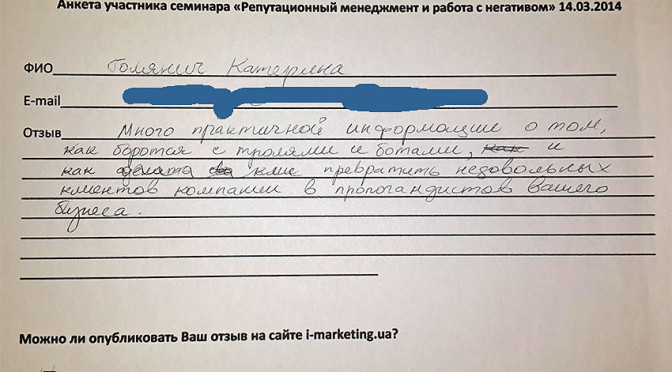 Анкета участника семинара «Репутационный менеджмент и работа с негативом» 14.03.2014
ФИО Гомянич Катерина
E-mail
Отзыв Много практичной информации о том,
как боротся с тролями и ботами, как и
как превратить недовольных
клиентов компании в пропогандистов вашего
бизнеса.
Можно ли опубликовать Ваш отзыв на сайте i-marketing.ua?